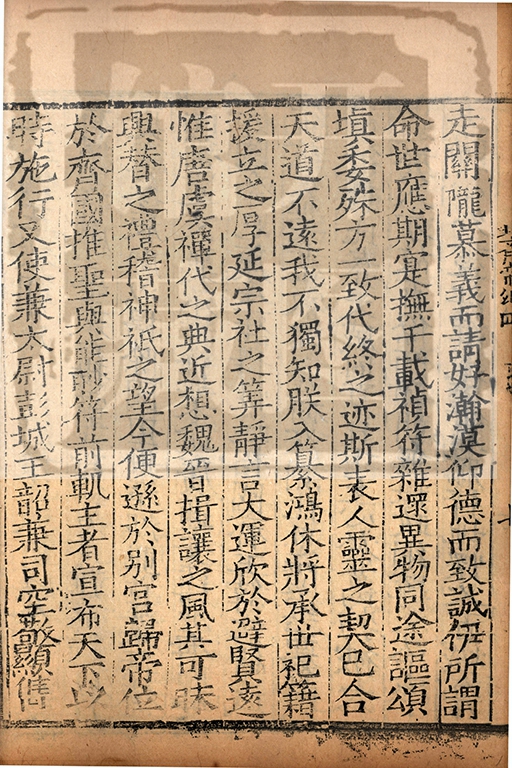 走關隴慕義而請好瀚漠仰德而致誠伊所謂
命世應期寔撫千載禎符雜遝異物同途謳頌
塡委殊方一致代終之迹斯表人靈之契已合
天道不遠我不獨知朕入纂鴻休將承世祀籍
援立之厚延宗社之筭靜言大運欣於避賢遠
惟唐虞禪代之典近想魏晉揖讓之風其可昧
興替之禮稽神祇之望今便遜於别宮歸帝位
於齊國推聖與能眇符前軌主者宣布天下以
時施行又使兼太尉彭城王韶兼司空敬顯儁